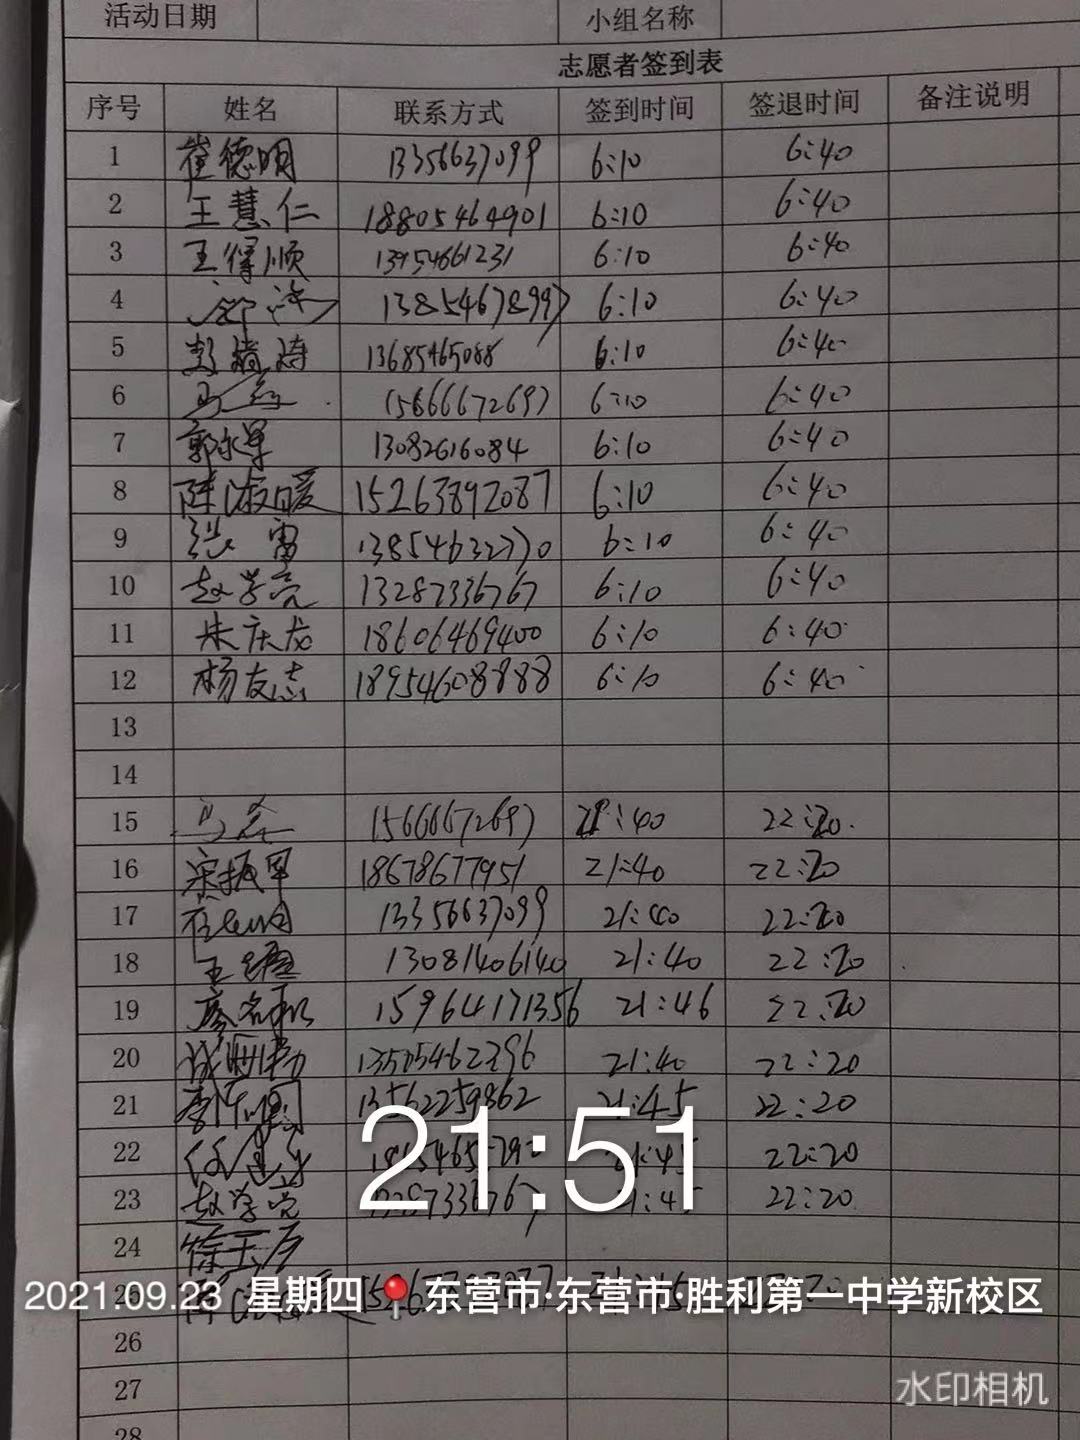 活动日期 小组名称
志愿者签到表
序号 姓名 联系方式 签到时间 签退时间 备注说明
1 崔德明 13356637099 6:10 6:40
2 王慧仁 18805464901 6:10 6:40
3 王得顺 13954661231 6:10 6:40
4 13854678997 6:10 6:40
5 13685465088 6:10 6:40
6 15666672697 6:10 6:40
7 郭永军 13082616084 6:10 6:40
8 陈淑暖 15263892087 6:10 6:40
9 张雷 13854632770 6:10 6:40
10 赵学亮 13287336767 6:10 6:40
11 朱庆龙 18606469400 6:10 6:40
12 杨友志 18954608888 6:10 6:40
13
14
15 15666672697 21:40 22:20
16 宋振军 18678677951 21:40 22:20
17 13356637099 21:40 22:20
18 13081406140 21:40 22:20
19 15964171356 21:46 22:20
20 13505462396 21:40 22:20
21 13562259862 21:45 22:20
22 21:45 22:20
23 赵学亮 13287336767 21:45 22:20
24 徐玉
25
26
27
28
21:51
2021.09.23 星期四 东营市·东营市·胜利第一中学新校区
水印相机